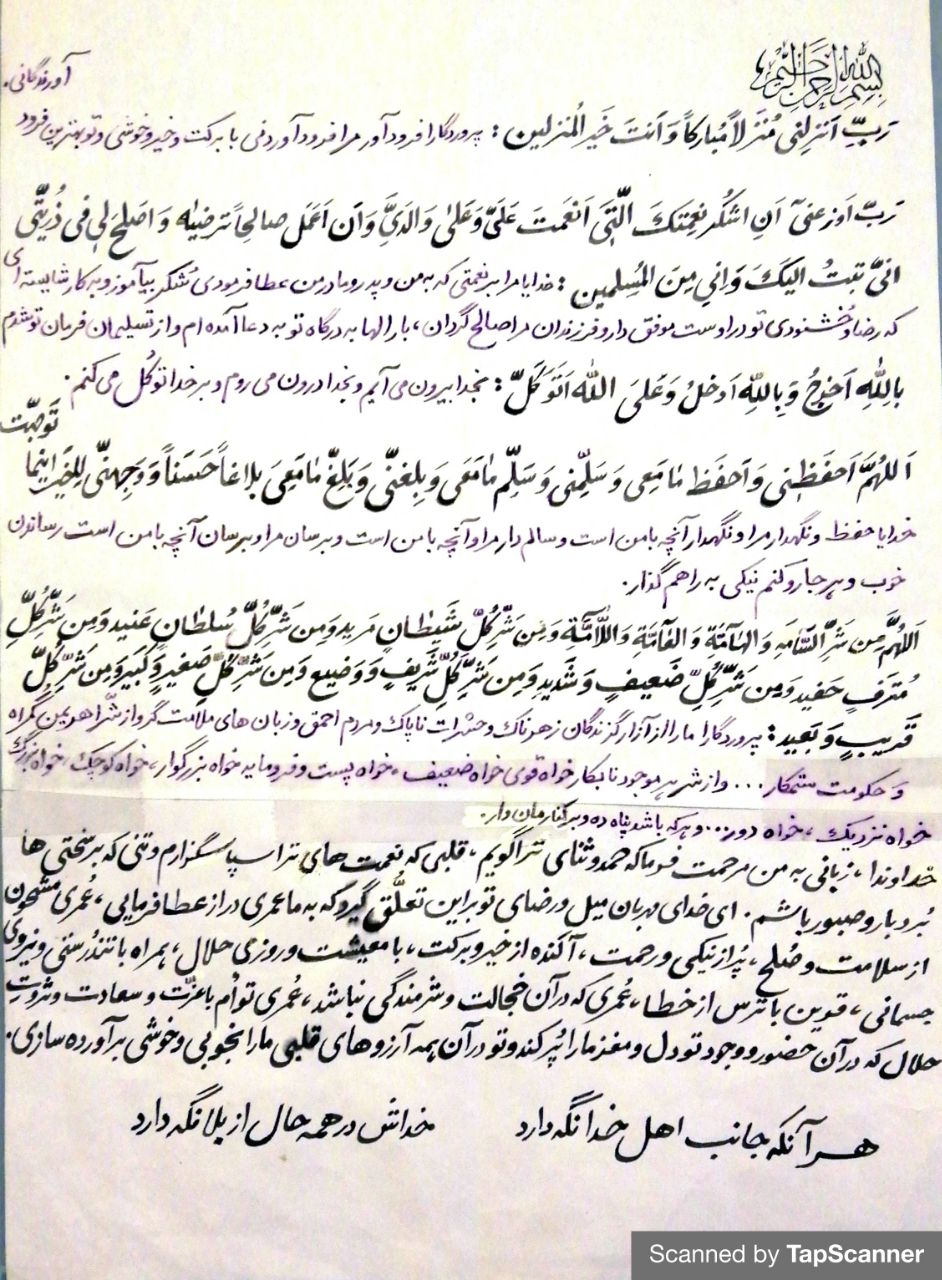 بسم الله الرحمن الرحیم
آورندگانی.
رَبِّ اَنزِلنِی مُنزَلاً مُبارکاً وَ اَنتَ خَیرُ المُنزلین : پروردگارا فرود آور مرا فرود آوردنی با برکت و خیر و خوشی و تو بهترین فرود
رَبِّ اَوزِعنی آَن اَشکُر نِعمتِکَ الّتَی اَنعَمتَ عَلَیَّ وَ عَلیٰ وَالدَیَّ وَ اَن اَعمَل صالِحاً تَرضیٰه وَ اَصلِح لی فی ذُریَّتی
انیَّ تبتُ الیکَ وَ انِی مِنَ المُسلمین : خدایا مرا بر نعمتی که به من و پدر و مادر من عطا فرمودی شکر بیآموز و به کار شایسته ای
که رضا و خشنودی تو در اوست موفق دار و فرزندان مرا صالح گردان ، بارالها به درگاه تو به دعا آمده ام و از تسلیمان فرمان تو شدم
بِاللهِ اَخرجُ وَ بِاللهِ اَدخلُ وَ عَلیَ اللهُ اَتَوَکَلّ : بخدا بیرون می آیم و بخدا درون می روم و بر خدا توکُل می کنم .
تَوَجّهتُ
اَللهُمَّ اَحفَظنی وَ اَحفَظ مٰا مَعِی وَ سَلِّمنی وَ سَلِّم مٰا مَعَی وَ بِلغنّی وَ بَلِغّ مٰا مَعِیَ بلاغاً حَسَناً وَ وَجِهنّی لِلخَیر اینما
خدایا حفظ و نگهدار مرا و نگهدار آنچه با من است و سالم دار مرا و آنچه با من است و برسان مرا و برسان آنچه با من است رساندن
خوب و بهر جا رو کنم نیکی به راهم گذار .
اَللهُمَّ مِن شَرِّ السّٰامَهِ وَ الهٰامَّة وَ العٰامَّة وَ اللّٰامَّة وَ مِن شَرِّ کُلّ شَیطٰانِ مَرید وَ مِن شَرِّ کُلِّ سُلطٰانِ عَنید وَ مِن شَرِّ کُلِّ
مُترَفِ حَفید وَ مِن شَرِّ کُلّ ضَعیفٍ وَ شَدیدٍ وَ مِن شَرِّ کُلِّ شَریفٍ وَ وَضیع وَ مِن شَرِّ کُلِّ صَغیرٍ وَ کَبیرٍ وَ مِن شَرِّ کُلِّ
قَریبٍ وَ بَعید : پروردگارا ما را از آزار گزندگان زهرناک و حشرات ناپاک و مردم احمق و زبان های ملامت گر و از شر اهریمن گمراه
و حکومت ستمکار ... و از شر هر موجود نابکار خواه قوی خواه ضعیف ، خواه پست و فرومایه خواه بزرگوار ، خواه کوچک ، خواه بزرگ
خواه نزدیک ، خواه دور ... و هر که باشد پناه ده و بر کنارمان دار .
خداوندا ، زبانی به من مرحمت فرما که حمد و ثنای ترا گویم ، قلبی که نعمت های ترا سپاسگزارم و تنی که بر سختی ها
بُردبار و صبور باشم . ای خدای مهربان میل و رضای تو بر این تعلُّق گیرد که به ما عمری دراز عطا فرمایی ، عُمری مشحون
از سلامت و صُلح ، پُر از نیکی و رحمت ، آکنده از خیر و برکت ، با معیشت و روزی حلال ، همراه با تندُرستی و نیروی
جسمانی ، قرین با ترس از خطا ، عُمری که در آن خجالت و شرمندگی نباشد ، عُمری توأم با عزّت و سعادت و ثروتِ
حلال که در آن حضور و وجود تو دل و مغز ما را پُر کند و تو در آن همه آرزوهای قلبی ما را بخوبی و خوشی برآورده سازی .
هر آنکه جانب اهل خدا نگه دارد خداش در همه حال از بلا نگه دارد
Scanned by TapScanner